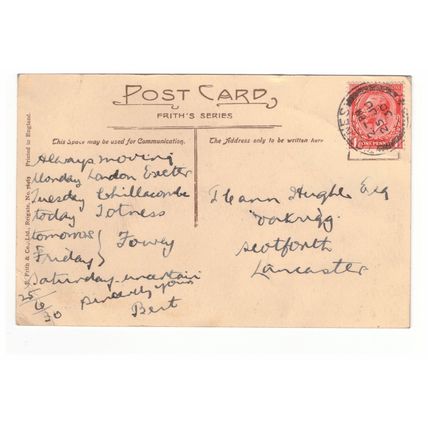 POST CARD
FRITH'S SERIES
This Space may be used for Communication.
The Address only to be written here
Always moving
Monday London Exeter
Tuesday Chillacombe
today Totness
tomorrow } Fowey
Friday
Saturday uncertain
Sincerely yours
Bert
25/6/30
Hughes Esq
Oakrigg
Scotforth
Lancaster
ONE PENNY
F. Frith & Co., Ltd., Reigate, No.
Printed in England.